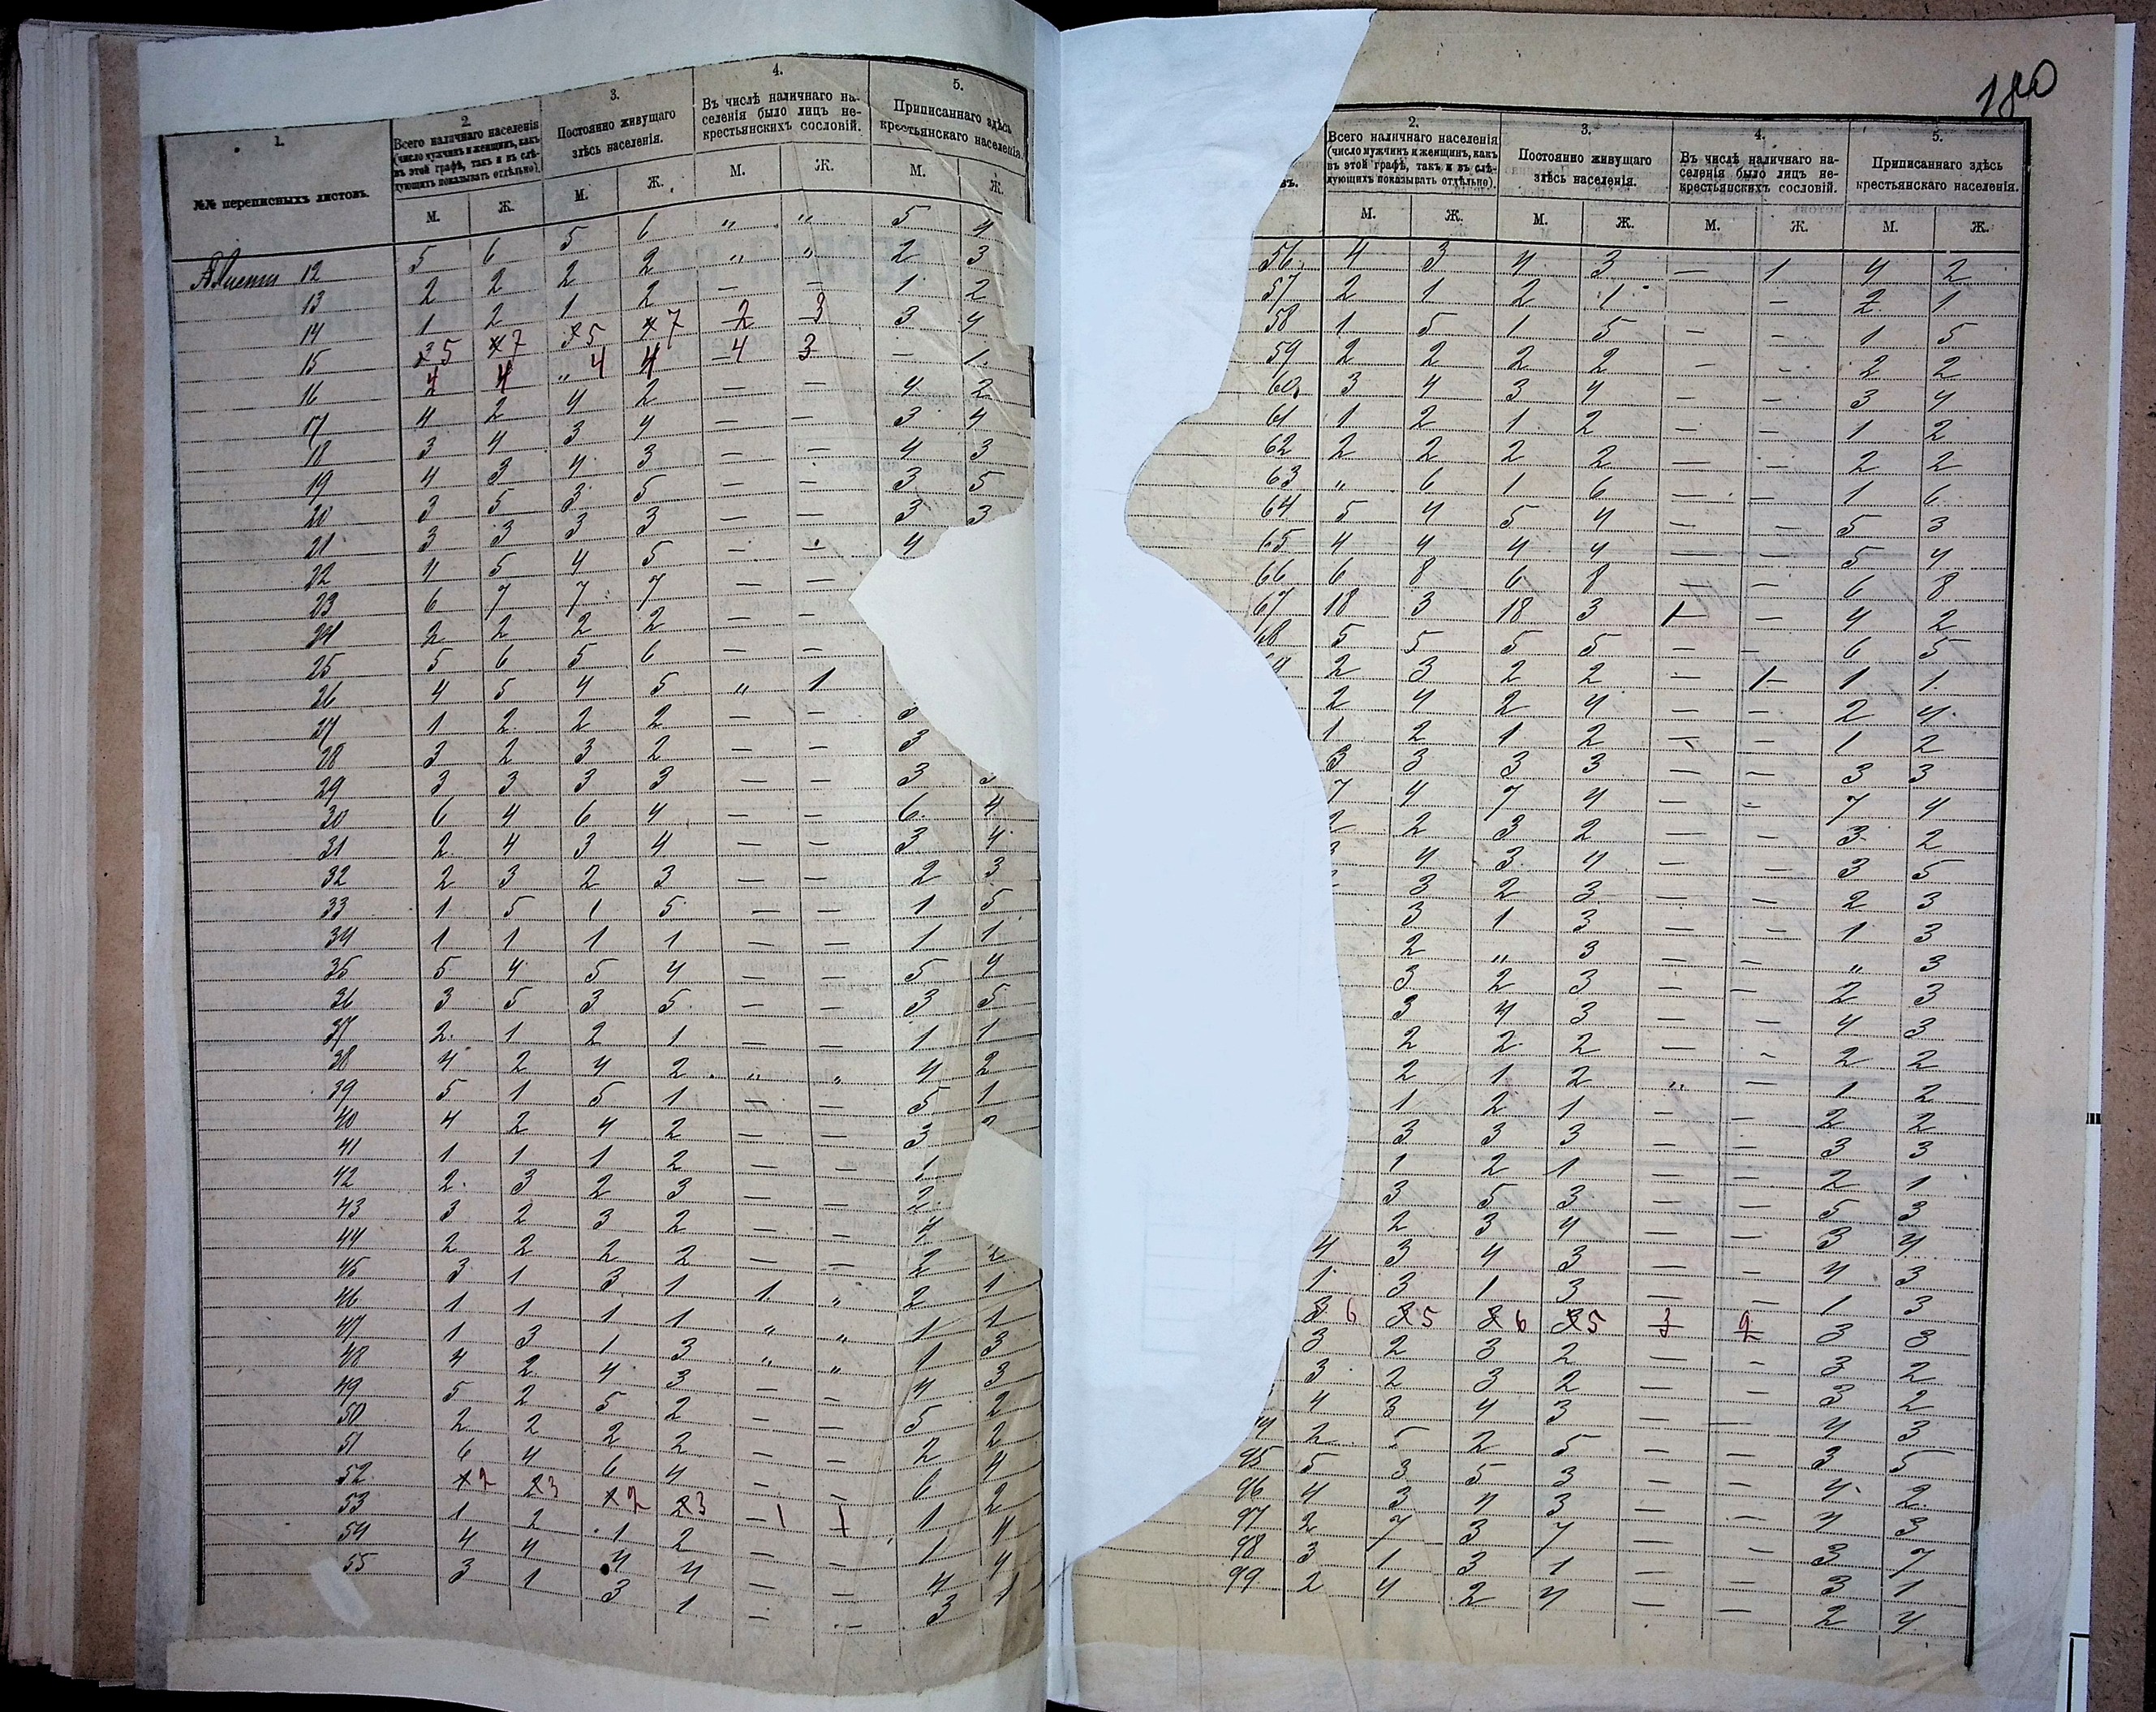 180
1.
№№ переписныхъ листовъ.
2.
Всего наличнаго населенія (число мужчинъ и женщинъ, какъ въ этой графѣ, такъ и въ слѣдующихъ показывать отдѣльно).
3.
Постоянно живущаго здѣсь населенія.
4.
Въ числѣ наличнаго населенія было лицъ некрестьянскихъ сословій.
5.
Приписаннаго здѣсь крестьянскаго населенія.
М. Ж. М. Ж. М. Ж. М. Ж.
12 5 6 5 6 „ „ 5 4
13 2 2 2 2 „ „ 2 3
14 1 2 1 2 — — 1 2
15 5 7 5 7 2 3 3 4
16 4 4 „ 4 4 4 3 — 1
17 4 2 4 2 — — 4 2
18 3 4 3 4 — — 3 4
19 4 3 4 3 — — 4 3
20 3 5 3 5 — — 3 5
21 3 3 3 3 — — 3 3
22 4 5 4 5 — — 4
23 6 7 7 7 — —
24 2 2 2 2 — —
25 5 6 5 6 — —
26 4 5 4 5 „ 1
27 1 2 2 2 — —
28 3 2 3 2 — — 3
29 3 3 3 3 — — 3 3
30 6 4 6 4 — — 6 4
31 2 4 3 4 — — 3 4
32 2 3 2 3 — — 2 3
33 1 5 1 5 — — 1 5
34 1 1 1 1 — — 1 1
35 5 4 5 4 — — 5 4
36 3 5 3 5 — — 3 5
37 2 1 2 1 — — 1 1
38 4 2 4 2 „ „ 4 2
39 5 1 5 1 — — 5 1
40 4 2 4 2 — — 3 2
41 1 1 1 2 — — 1
42 2 3 2 3 — — 2
43 3 2 3 2 — — 4
44 2 2 2 2 — — 2 2
45 3 1 3 1 1 „ 2 1
46 1 1 1 1 „ „ 1 1
47 1 3 1 3 „ „ 1 3
48 4 2 4 3 — — 4 3
49 5 2 5 2 — — 5 2
50 2 2 2 2 — — 2 2
51 6 4 6 4 — — 6 4
52 2 3 2 3 1 1 1 2
53 1 2 1 2 — — 1 4
54 4 4 4 4 — — 4 4
55 3 1 3 1 — — 3 1
2.
Всего наличнаго населенія (число мужчинъ и женщинъ, какъ въ этой графѣ, такъ и въ слѣдующихъ показывать отдѣльно).
3.
Постоянно живущаго здѣсь населенія.
4.
Въ числѣ наличнаго населенія было лицъ некрестьянскихъ сословій.
5.
Приписаннаго здѣсь крестьянскаго населенія.
М. Ж. М. Ж. М. Ж. М. Ж.
56 4 3 4 3 — 1 4 2
57 2 1 2 1 — 2 1
58 1 5 1 5 — — 1 5
59 2 2 2 2 — — 2 2
60 3 4 3 4 — — 3 4
61 1 2 1 2 — — 1 2
62 2 2 2 2 — — 2 2
63 „ 6 1 6 — — 1 6
64 5 4 5 4 — — 5 3
65 4 4 4 4 — — 5 4
66 6 8 6 8 — — 6 8
67 18 3 18 3 1 — 4 2
68 5 5 5 5 — — 6 5
2 3 2 2 — 1 1 1
2 4 2 4 — — 2 4
1 2 1 2 — — 1 2
3 3 3 3 — — 3 3
7 4 7 4 — — 7 4
2 2 3 2 — — 3 2
4 3 4 — — 3 5
3 2 3 — — 2 3
3 1 3 — — 1 3
2 „ 3 — — „ 3
3 2 3 — — 2 3
3 4 3 — — 4 3
2 2 2 — — 2 2
2 1 2 „ — 1 2
1 2 1 — — 2 2
3 3 3 — — 3 3
1 2 1 — — 2 1
3 5 3 — — 5 3
2 3 4 — — 3 4
4 3 4 3 — — 4 3
1 3 1 3 — — 1 3
6 5 6 5 3 2 3 3
3 2 3 2 — — 3 2
3 2 3 2 — — 3 2
4 3 4 3 — — 4 3
2 5 2 5 — — 3 5
95 5 3 5 3 — — 4 2
96 4 3 4 3 — — 4 3
97 2 7 3 7 — — 3 7
98 3 1 3 1 — — 3 1
99 2 4 2 4 — — 2 4